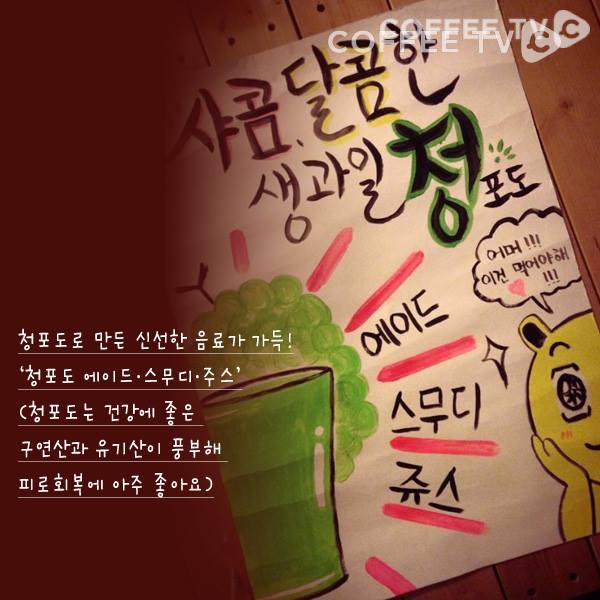 COFFEE TV
COFFEE TV
샤콤, 달콤한
생과일 청포도
어머!!!
이건 먹어야해
!!!
에이드
스무디
쥬스
청포도로 만든 신선한 음료가 가득!
‘청포도 에이드·스무디·주스’
(청포도는 건강에 좋은
구연산과 유기산이 풍부해
피로회복에 아주 좋아요)